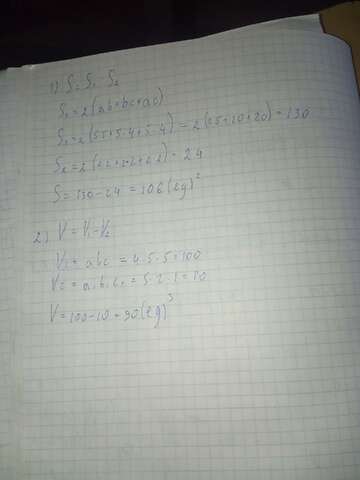 1) S = S₁ - S₂
S₁ = 2(ab+bc+ac)
S₁ = 2(5·5+5·4+5·4) = 2(25+20+20) = 130
S₂ = 2(2·2+2·2+2·2) = 24
S = 130-24 = 106(ед)²
2) V = V₁-V₂
V₁ = abc = 4·5·5=100
V₂ = a₁b₁c₁ = 5·2·1=10
V=100-10=90(ед)³